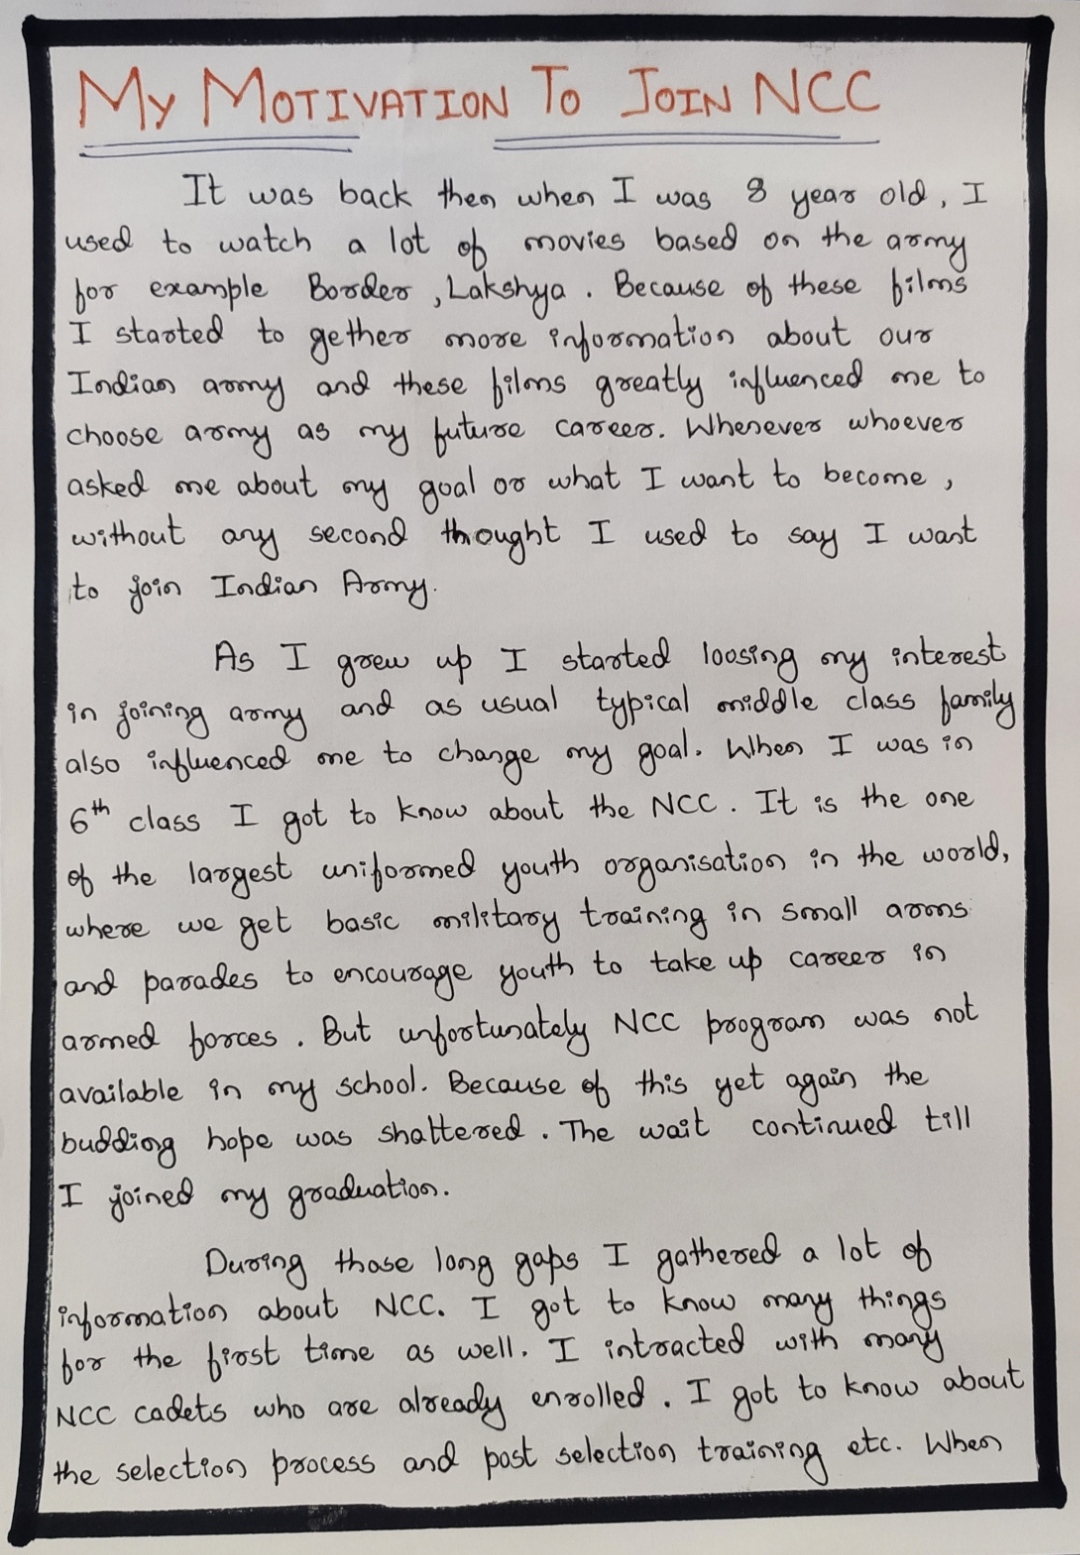 MY MOTIVATION TO JOIN NCC
It was back then when I was 8 year old, I
used to watch a lot of movies based on the army
for example Border, Lakshya. Because of these films
I started to gether more information about our
Indian army and these films greatly influenced me to
choose army as my future career. Whenever whoever
asked me about my goal or what I want to become,
without any second thought I used to say I want
to join Indian Army.
As I grew up I started loosing my interest
in joining army and as usual typical middle class family
also influenced me to change my goal. When I was in
6th class I got to know about the NCC. It is the one
of the largest uniformed youth organisation in the world,
where we get basic military training in small arms
and parades to encourage youth to take up career in
armed forces. But unfortunately NCC program was not
available in my school. Because of this yet again the
budding hope was shattered. The wait continued till
I joined my graduation.
During those long gaps I gathered a lot of
information about NCC. I got to know many things
for the first time as well. I intracted with many
NCC cadets who are already enrolled. I got to know about
the selection process and post selection training etc. When